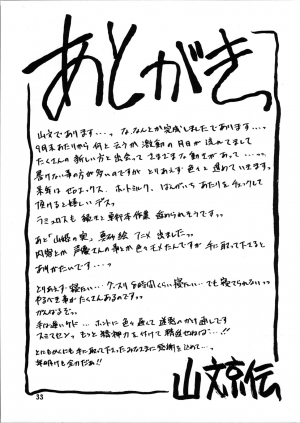 あとがき
山文であります・・・。な、なんとか完成しましたであります・・・。
9月末あたりから何と云うか激動の月日が流れてまして
たくさんの新しい方と出会って さまざまな動きがあって・・・。
書けない事の方が多いのですが とりあえず色々と進めています。
来年は ゼロエックス、ホットミルク、 あたりをチェックして
頂けると嬉しいデス。
ラミュロスも 単行本作業 進められそうです。。
あと「山姫の実」 アニメ 出ました。。
内容とか 声優さんの事とか色々モメたんですが 手に取って下さると
ありがたいです・・・。
とりあえず・寝たい・・・グッスリ8時間くらい寝たい・・・でも寝てられない。。
やるべき事がたくさんあるのですッ。
がんばるぞっ。
ホントに色々遅くて迷惑のかけ通しです
スミマセン。もっと精神力を付けて精進せねば・・・!!
とにもかくにも手に取って下さったみなさまに感謝を込めて・・・。
年明けも全力だぁ!!
山文京伝
33